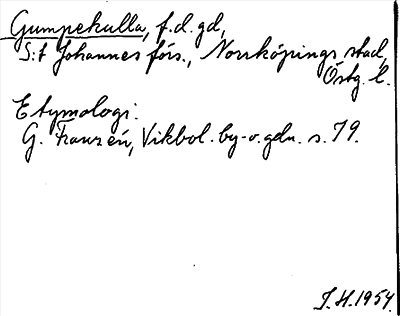 Gumpekulla, f.d. gd,
S:t Johannes förs., Norrköpings stad,
Östg. l.
Etymologi:
G. Franzén, Vikbol. by- o. gdn. s. 79.
I. H. 1954.